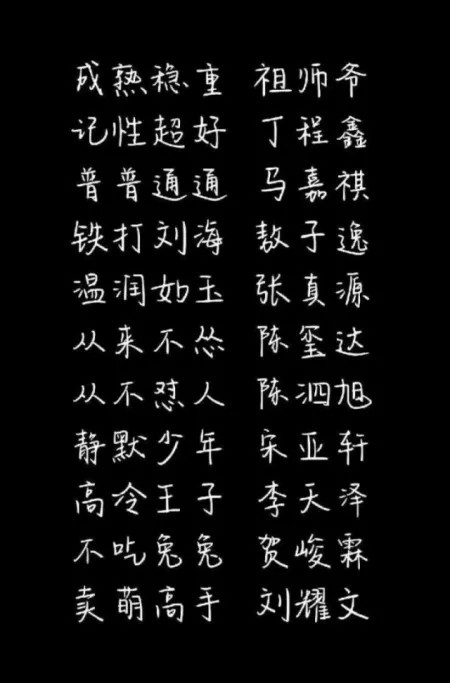 成熟稳重 祖师爷
记性超好 丁程鑫
普普通通 马嘉祺
铁打刘海 敖子逸
温润如玉 张真源
从来不怂 陈玺达
从不怼人 陈泗旭
静默少年 宋亚轩
高冷王子 李天泽
不吃兔兔 贺峻霖
卖萌高手 刘耀文